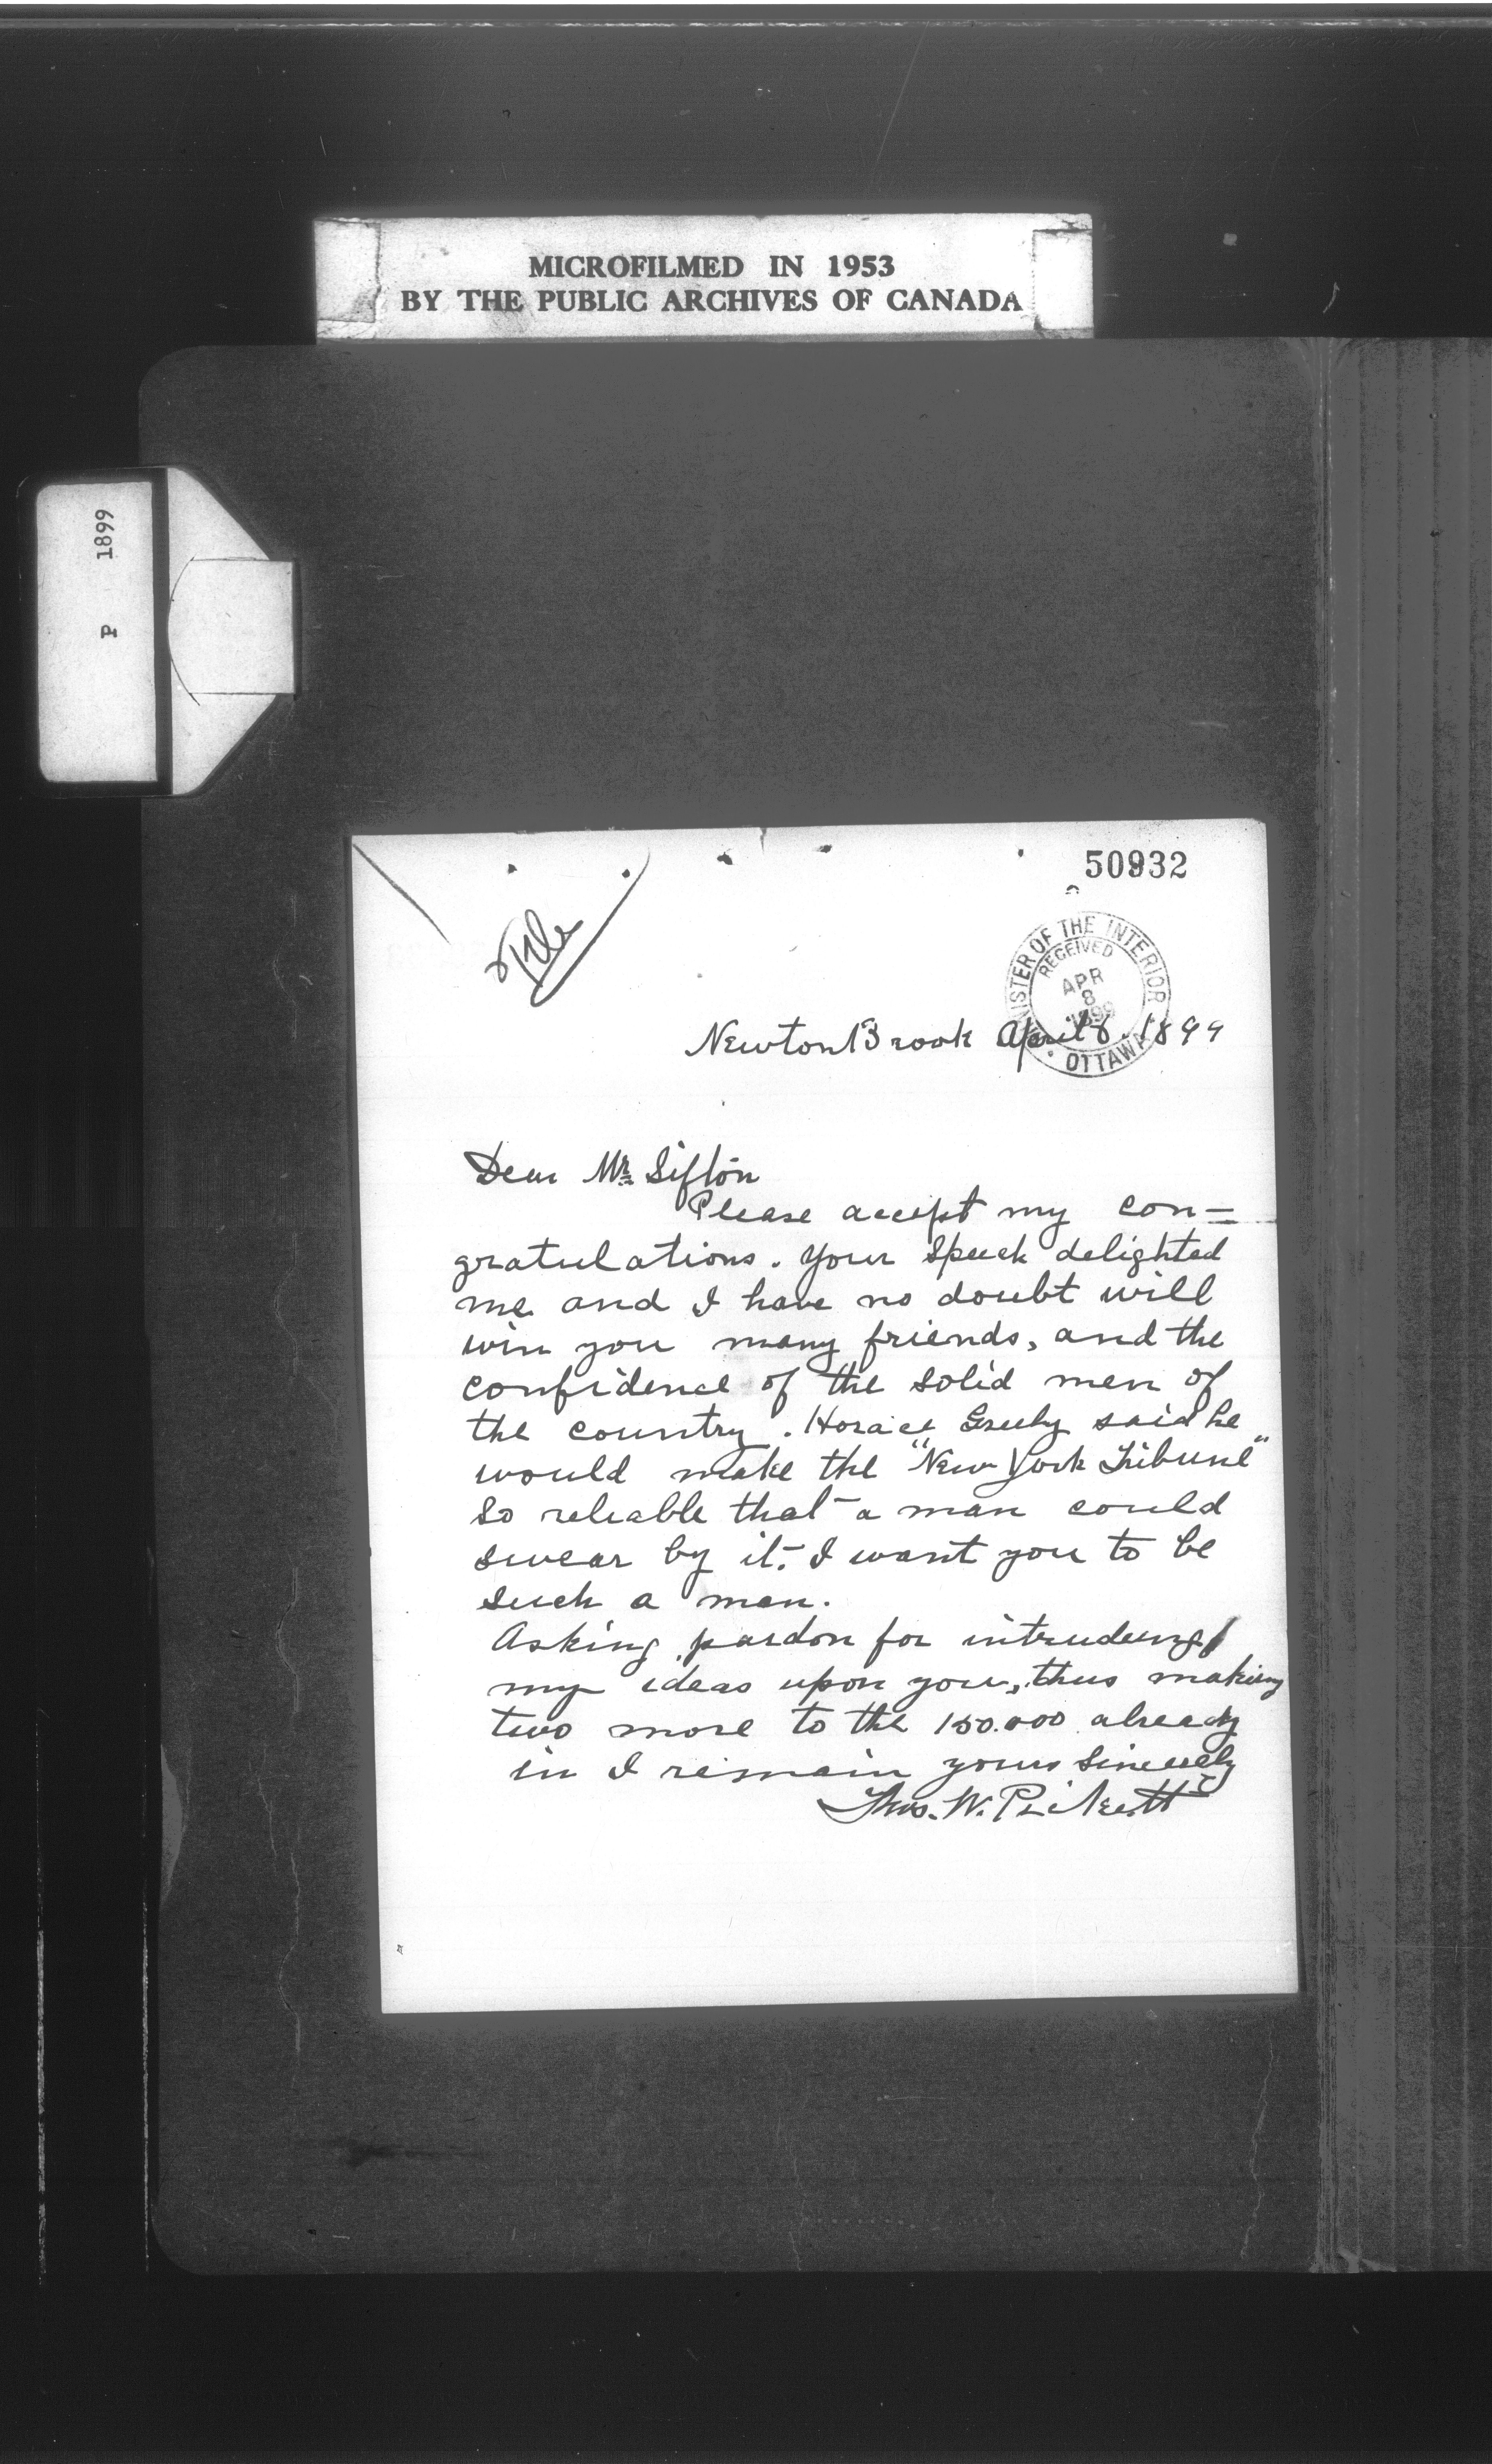 MICROFILMED IN 1953
BY THE PUBLIC ARCHIVES OF CANADA
P 1899
50932
File
MINISTER OF THE INTERIOR
RECEIVED
APR
8
1899
OTTAWA
Newton Brook April 6. 1899
Dear Mr. Sifton
Please accept my con=
gratulations. Your Speech delighted
me and I have no doubt will
win you many friends, and the
confidence of the solid men of
the country. Horace Greely said he
would make the "New York Tribune"
so reliable that a man could
swear by it. I want you to be
such a man.
Asking pardon for intruding
my ideas upon you, thus making
two more to the 150.000 already
in I remain yours Sincerely
Thos. W. Pickett